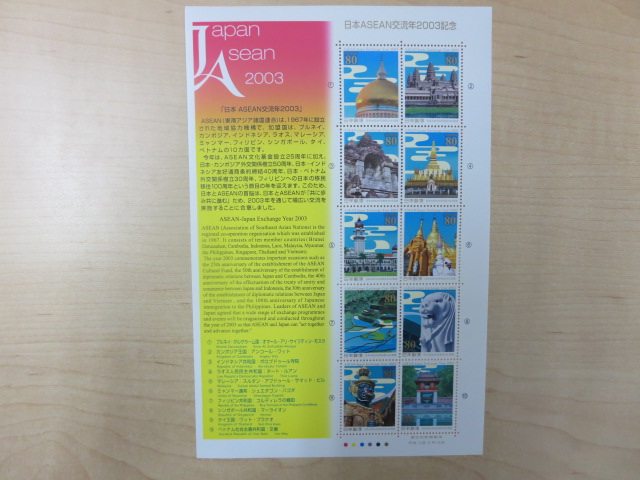 Japan
Asean
2003
日本ASEAN交流年2003記念
「日本 ASEAN交流年2003」
ASEAN(東南アジア諸国連合)は、1967年に設立
された地域協力機構で、加盟国は、ブルネイ、
カンボジア、インドネシア、ラオス、マレーシア、
ミャンマー、フィリピン、シンガポール、タイ、
ベトナムの10カ国です。
今年は、ASEAN文化基金設立25周年に加え、
日本・カンボジア外交関係樹立50周年、日本・インドネ
シア友好通商条約締結40周年、日本・ベトナム
外交関係樹立30周年、フィリピンへの日本の移民
移住100周年という節目の年を迎えます。このため、
日本とASEANの首脳は、日本とASEANが「共に歩
み共に進む」ため、2003年を通じて幅広い交流を
実施することに合意しました。
ASEAN-Japan Exchange Year 2003
ASEAN (Association of Southeast Asian Nations) is the
regional co-operation organisation which was established
in 1967. It consists of ten member countries (Brunei
Darussalam, Cambodia, Indonesia, Laos, Malaysia, Myanmar,
the Philippines, Singapore, Thailand and Vietnam).
The year 2003 commemorates important occasions such as
the 25th anniversary of the establishment of the ASEAN
Cultural Fund, the 50th anniversary of the establishment of
diplomatic relations between Japan and Cambodia, the 40th
anniversary of the effectuation of the treaty of amity and
commerce between Japan and Indonesia, the 30th anniversary
of the establishment of diplomatic relations between Japan
and Vietnam, and the 100th anniversary of Japanese
immigration to the Philippines. Leaders of ASEAN and
Japan agreed that a wide range of exchange programmes
and events will be organised and conducted throughout
the year of 2003 so that ASEAN and Japan can "act together
and advance together."
① ブルネイ・ダルサラーム国 オマール・アリ・サイフディン・モスク
② カンボジア王国 アンコール・ワット
③ インドネシア共和国 ボロブドゥール寺院
④ ラオス人民民主共和国 タート・ルアン
⑤ マレーシア スルタン・アブドゥール・サマッド・ビル
⑥ ミャンマー連邦 シュエダゴン・パゴダ
⑦ フィリピン共和国 コルディレラの棚田
⑧ シンガポール共和国 マーライオン
⑨ タイ王国 ワット・プラケオ
⑩ ベトナム社会主義共和国 文廟
① 80 日本郵便
② 80 日本郵便
③ 80 日本郵便
④ 80 日本郵便
⑤ 80 日本郵便
⑥ 80 日本郵便
⑦ 80 日本郵便
⑧ 80 日本郵便
⑨ 80 日本郵便
⑩ 80 日本郵便